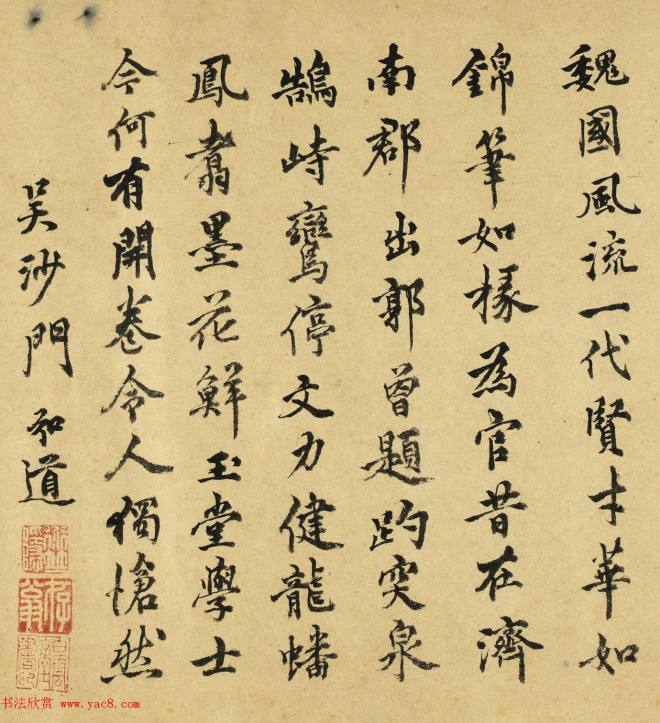 魏國風流一代賢才華如
錦筆如椽為官昔在濟
南郡出郭曾題趵突泉
鵠峙鸞停文力健龍蟠
鳳翥墨花鮮玉堂學士
今何有開卷令人獨愴然
吴沙門 弘道
书法欣赏 www.yac8.com